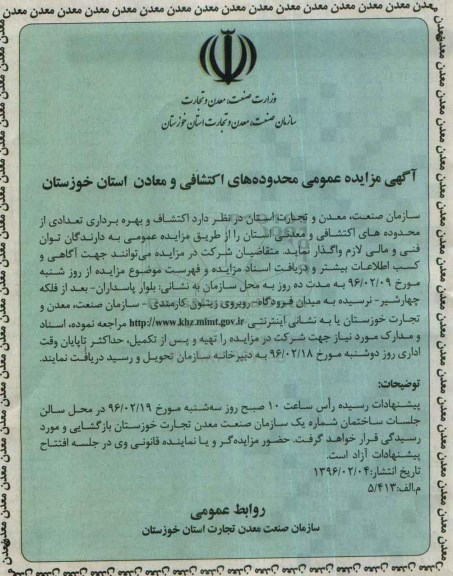 وزارت صنعت، معدن و تجارت
سازمان صنعت، معدن و تجارت استان خوزستان
آگهی مزایده عمومی محدوده‌های اکتشافی و معادن استان خوزستان
سازمان صنعت، معدن و تجارت استان در نظر دارد اکتشاف و بهره برداری تعدادی از
محدوده های اکتشافی و معدنی استان را از طریق مزایده عمومی به دارندگان توان
فنی و مالی لازم واگذار نماید. متقاضیان شرکت در مزایده می‌توانند جهت آگاهی و
کسب اطلاعات بیشتر و دریافت اسناد مزایده و فهرست موضوع مزایده از روز شنبه
مورخ ۹۶/۰۲/۰۹ به مدت ده روز به محل سازمان به نشانی: بلوار پاسداران- بعد از فلکه
چهارشیر- نرسیده به میدان فرودگاه- روبروی زیتون کارمندی - سازمان صنعت، معدن و
تجارت خوزستان یا به نشانی اینترنتی http://www.khz.mimt.gov.ir مراجعه نموده، اسناد
و مدارک مورد نیاز جهت شرکت در مزایده را تهیه و پس از تکمیل، حداکثر تا پایان وقت
اداری روز دوشنبه مورخ ۹۶/۰۲/۱۸ به دبیرخانه سازمان تحویل و رسید دریافت نمایند.
توضیحات:
پیشنهادات رسیده رأس ساعت ۱۰ صبح روز سه‌شنبه مورخ ۹۶/۰۲/۱۹ در محل سالن
جلسات ساختمان شماره یک سازمان صنعت معدن تجارت خوزستان بازگشایی و مورد
رسیدگی قرار خواهد گرفت. حضور مزایده‌گر و یا نماینده قانونی وی در جلسه افتتاح
پیشنهادات آزاد است.
تاریخ انتشار: ۱۳۹۶/۰۲/۰۴
م.الف: ۵/۴۱۳
روابط عمومی
سازمان صنعت معدن تجارت استان خوزستان